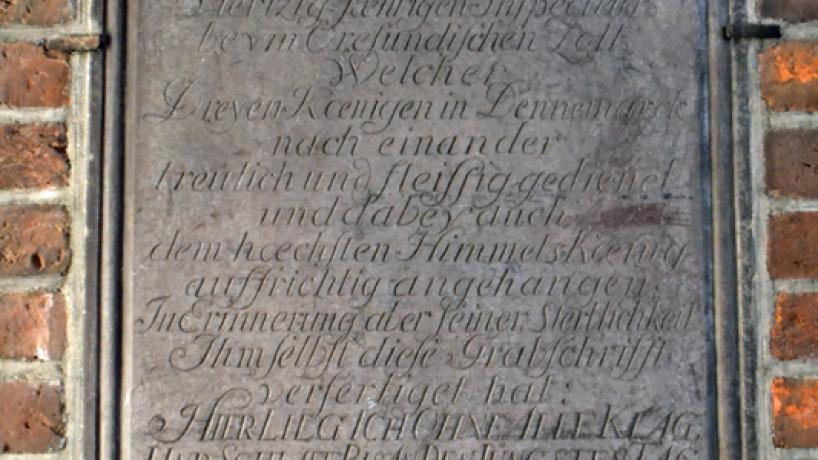 Viertzig-Jæhrigen Inspecteur
beym Oresundischen Zoll.
Welcher
Dreyen Kœnigen in Dennemarck
nach einander
treulich und fleissig gedienet
und dabey auch
dem hœchsten Himmels Kœnig
auffrichtig angehangen,
In Erinnerung aber seiner Sterblichkeit
Ihm selbst diese Grabschrifft
verfertiget hat:
HIER LIEG ICH OHNE ALLE KLAG,
UND SCHLAFF BIS AN DEN JÜNGSTEN TAG